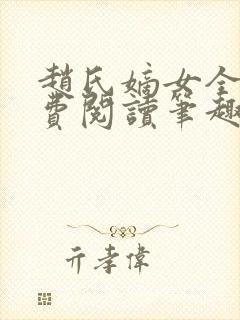 趙氏嫡女全
費閱讀筆趣
亓孝偉